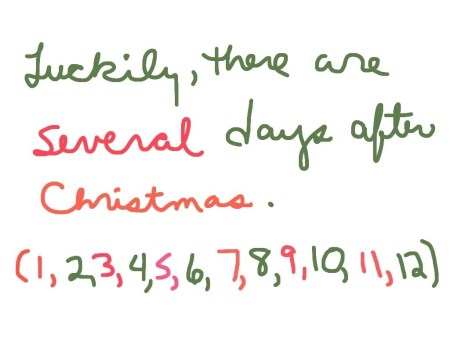 Luckily, there are
several days after
Christmas.
(1, 2, 3, 4, 5, 6, 7, 8, 9, 10, 11, 12)